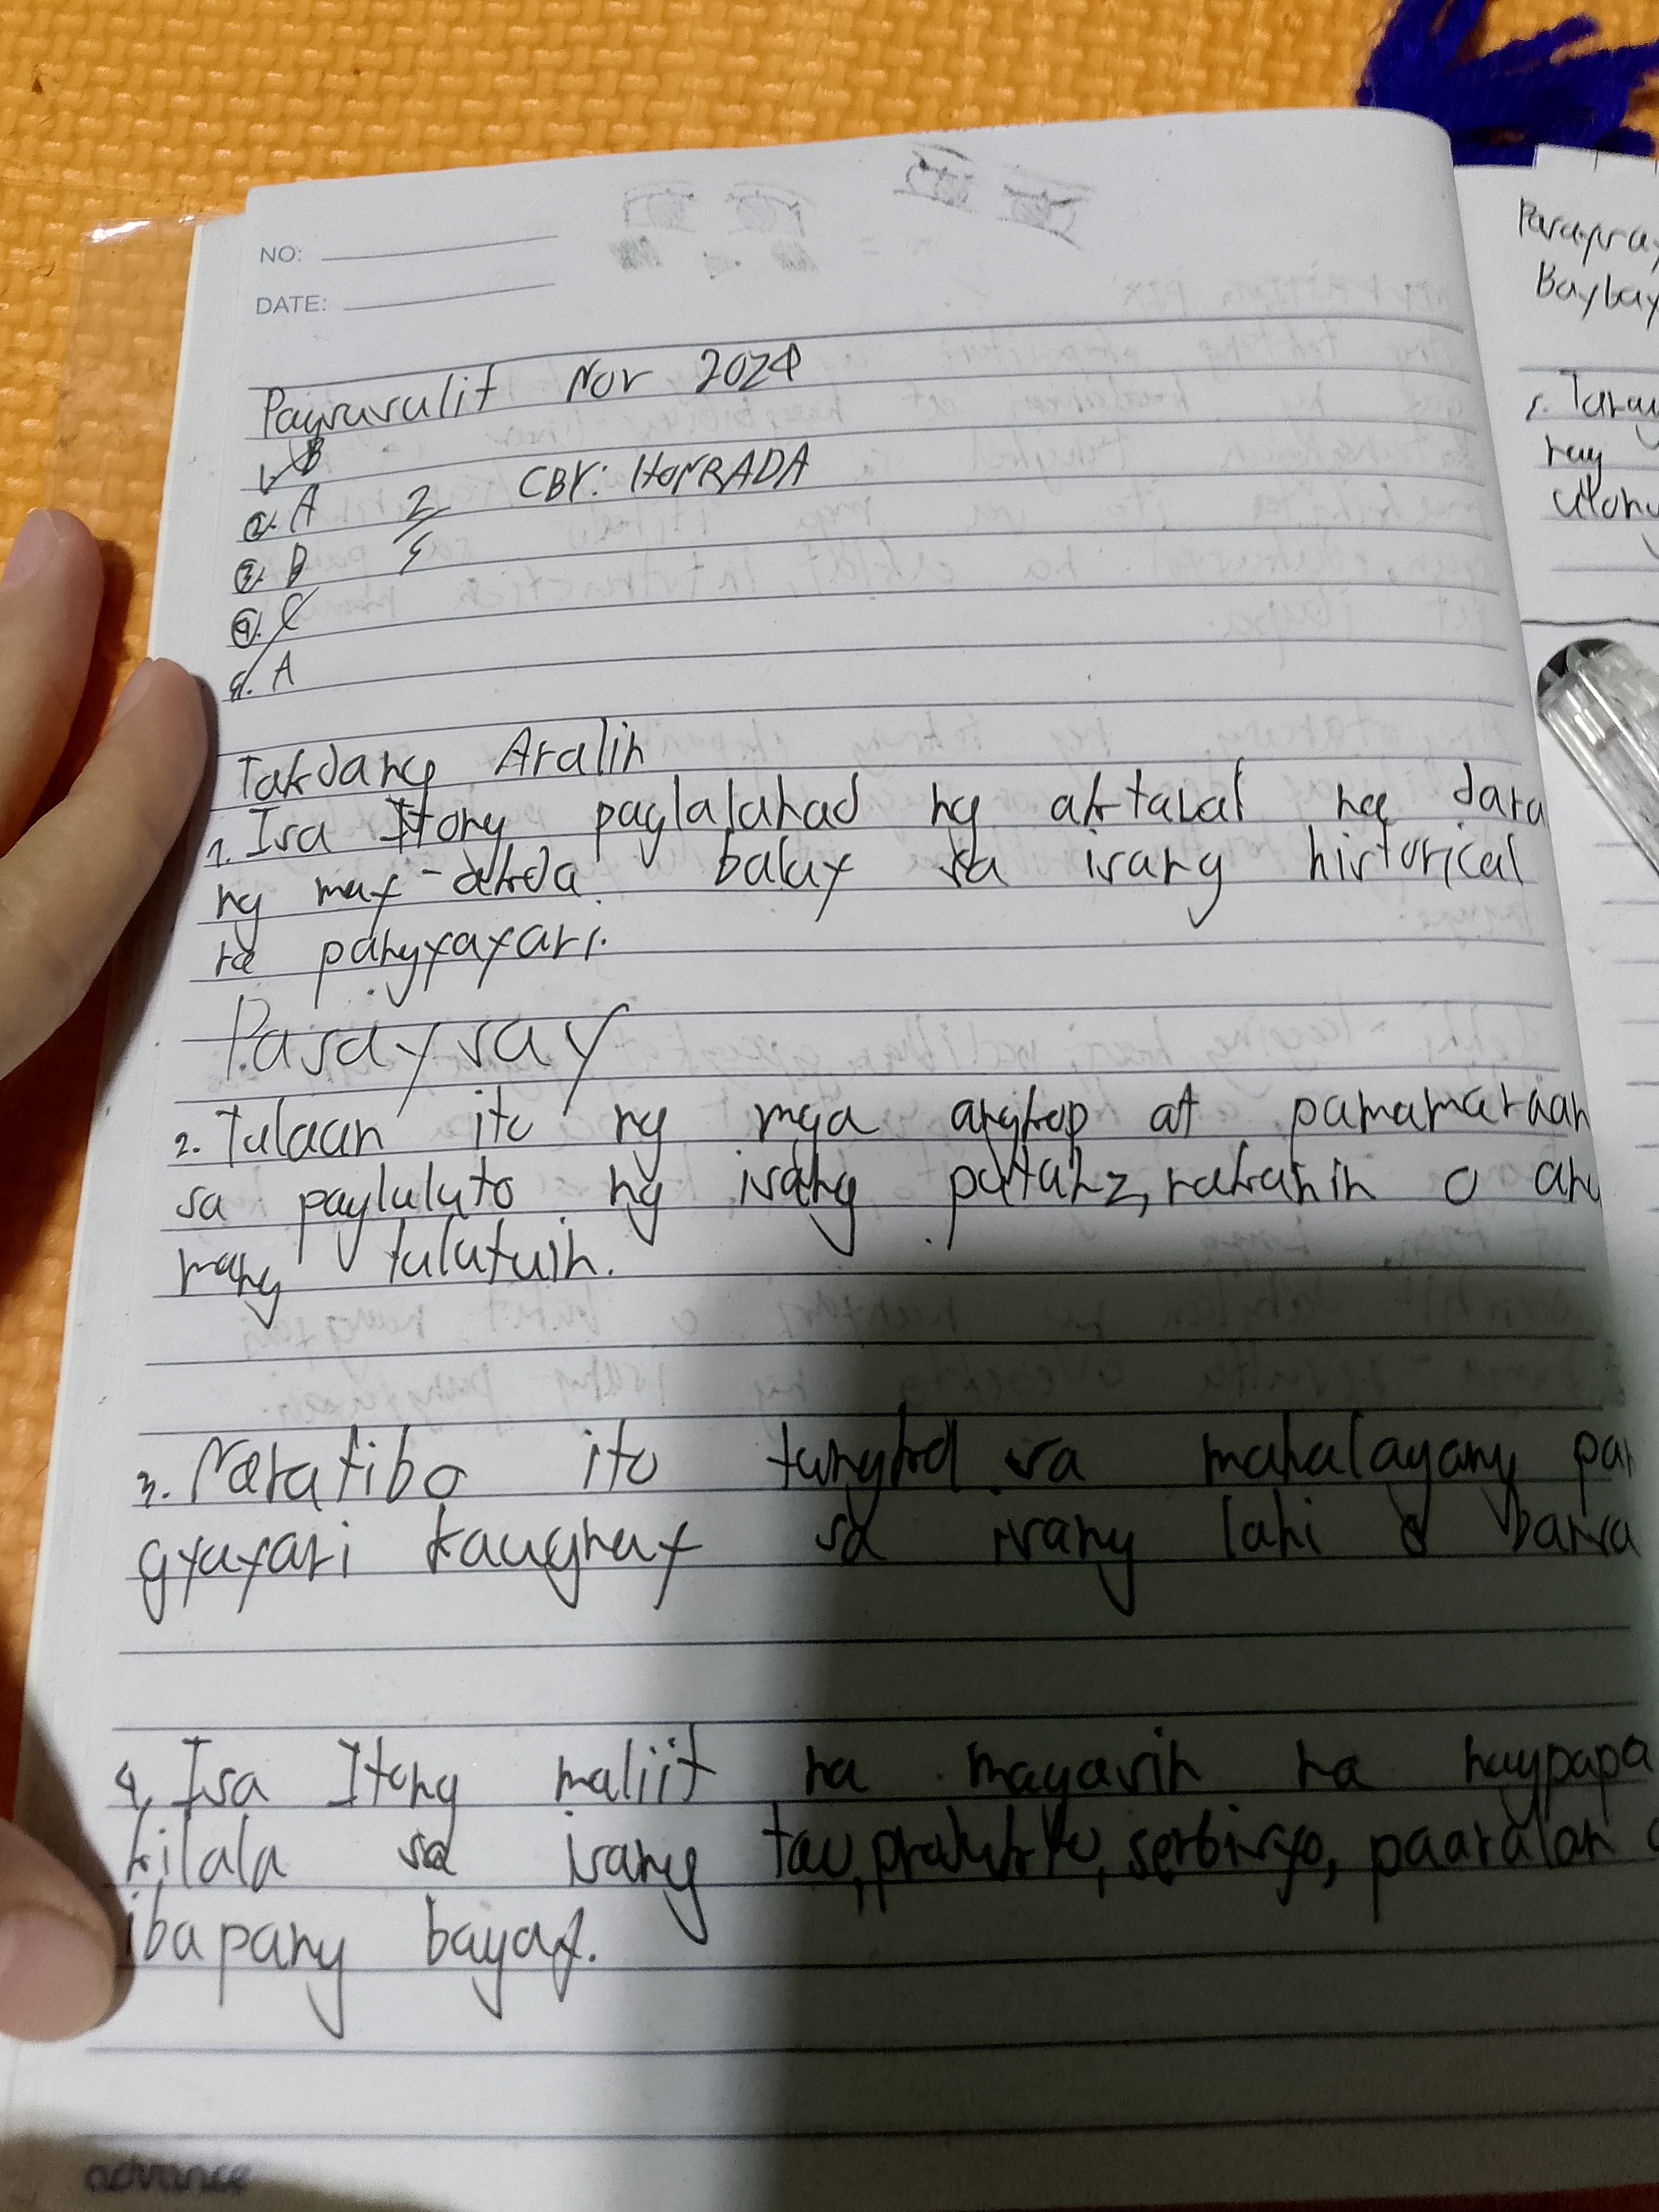 NO:
DATE:
Pagsusulit Nov 2024
1. B
2. A 2/5 CBY: HONRADA
3. B
4. C
5. A
Takdang Aralin
1. Isa Itong paglalahad ng aktawal na
ng may-akda balay sa isang historical
na pangyayari.
Pasaysay
2. Tulaan ito ng mga angkop at pamamaraan
sa pagluluto ng isang putahe, kakanin o anu
mang lulutuin.
3. Naratibo ito tungkol sa mahalagang pan
gyayari kaugnay sa isang lahi o bansa
4. Isa Itong maliit na magasin na nagpapa
kilala sa isang tao, produkto, serbisyo, paaralan o
iba pang bagay.
advance
Baybay